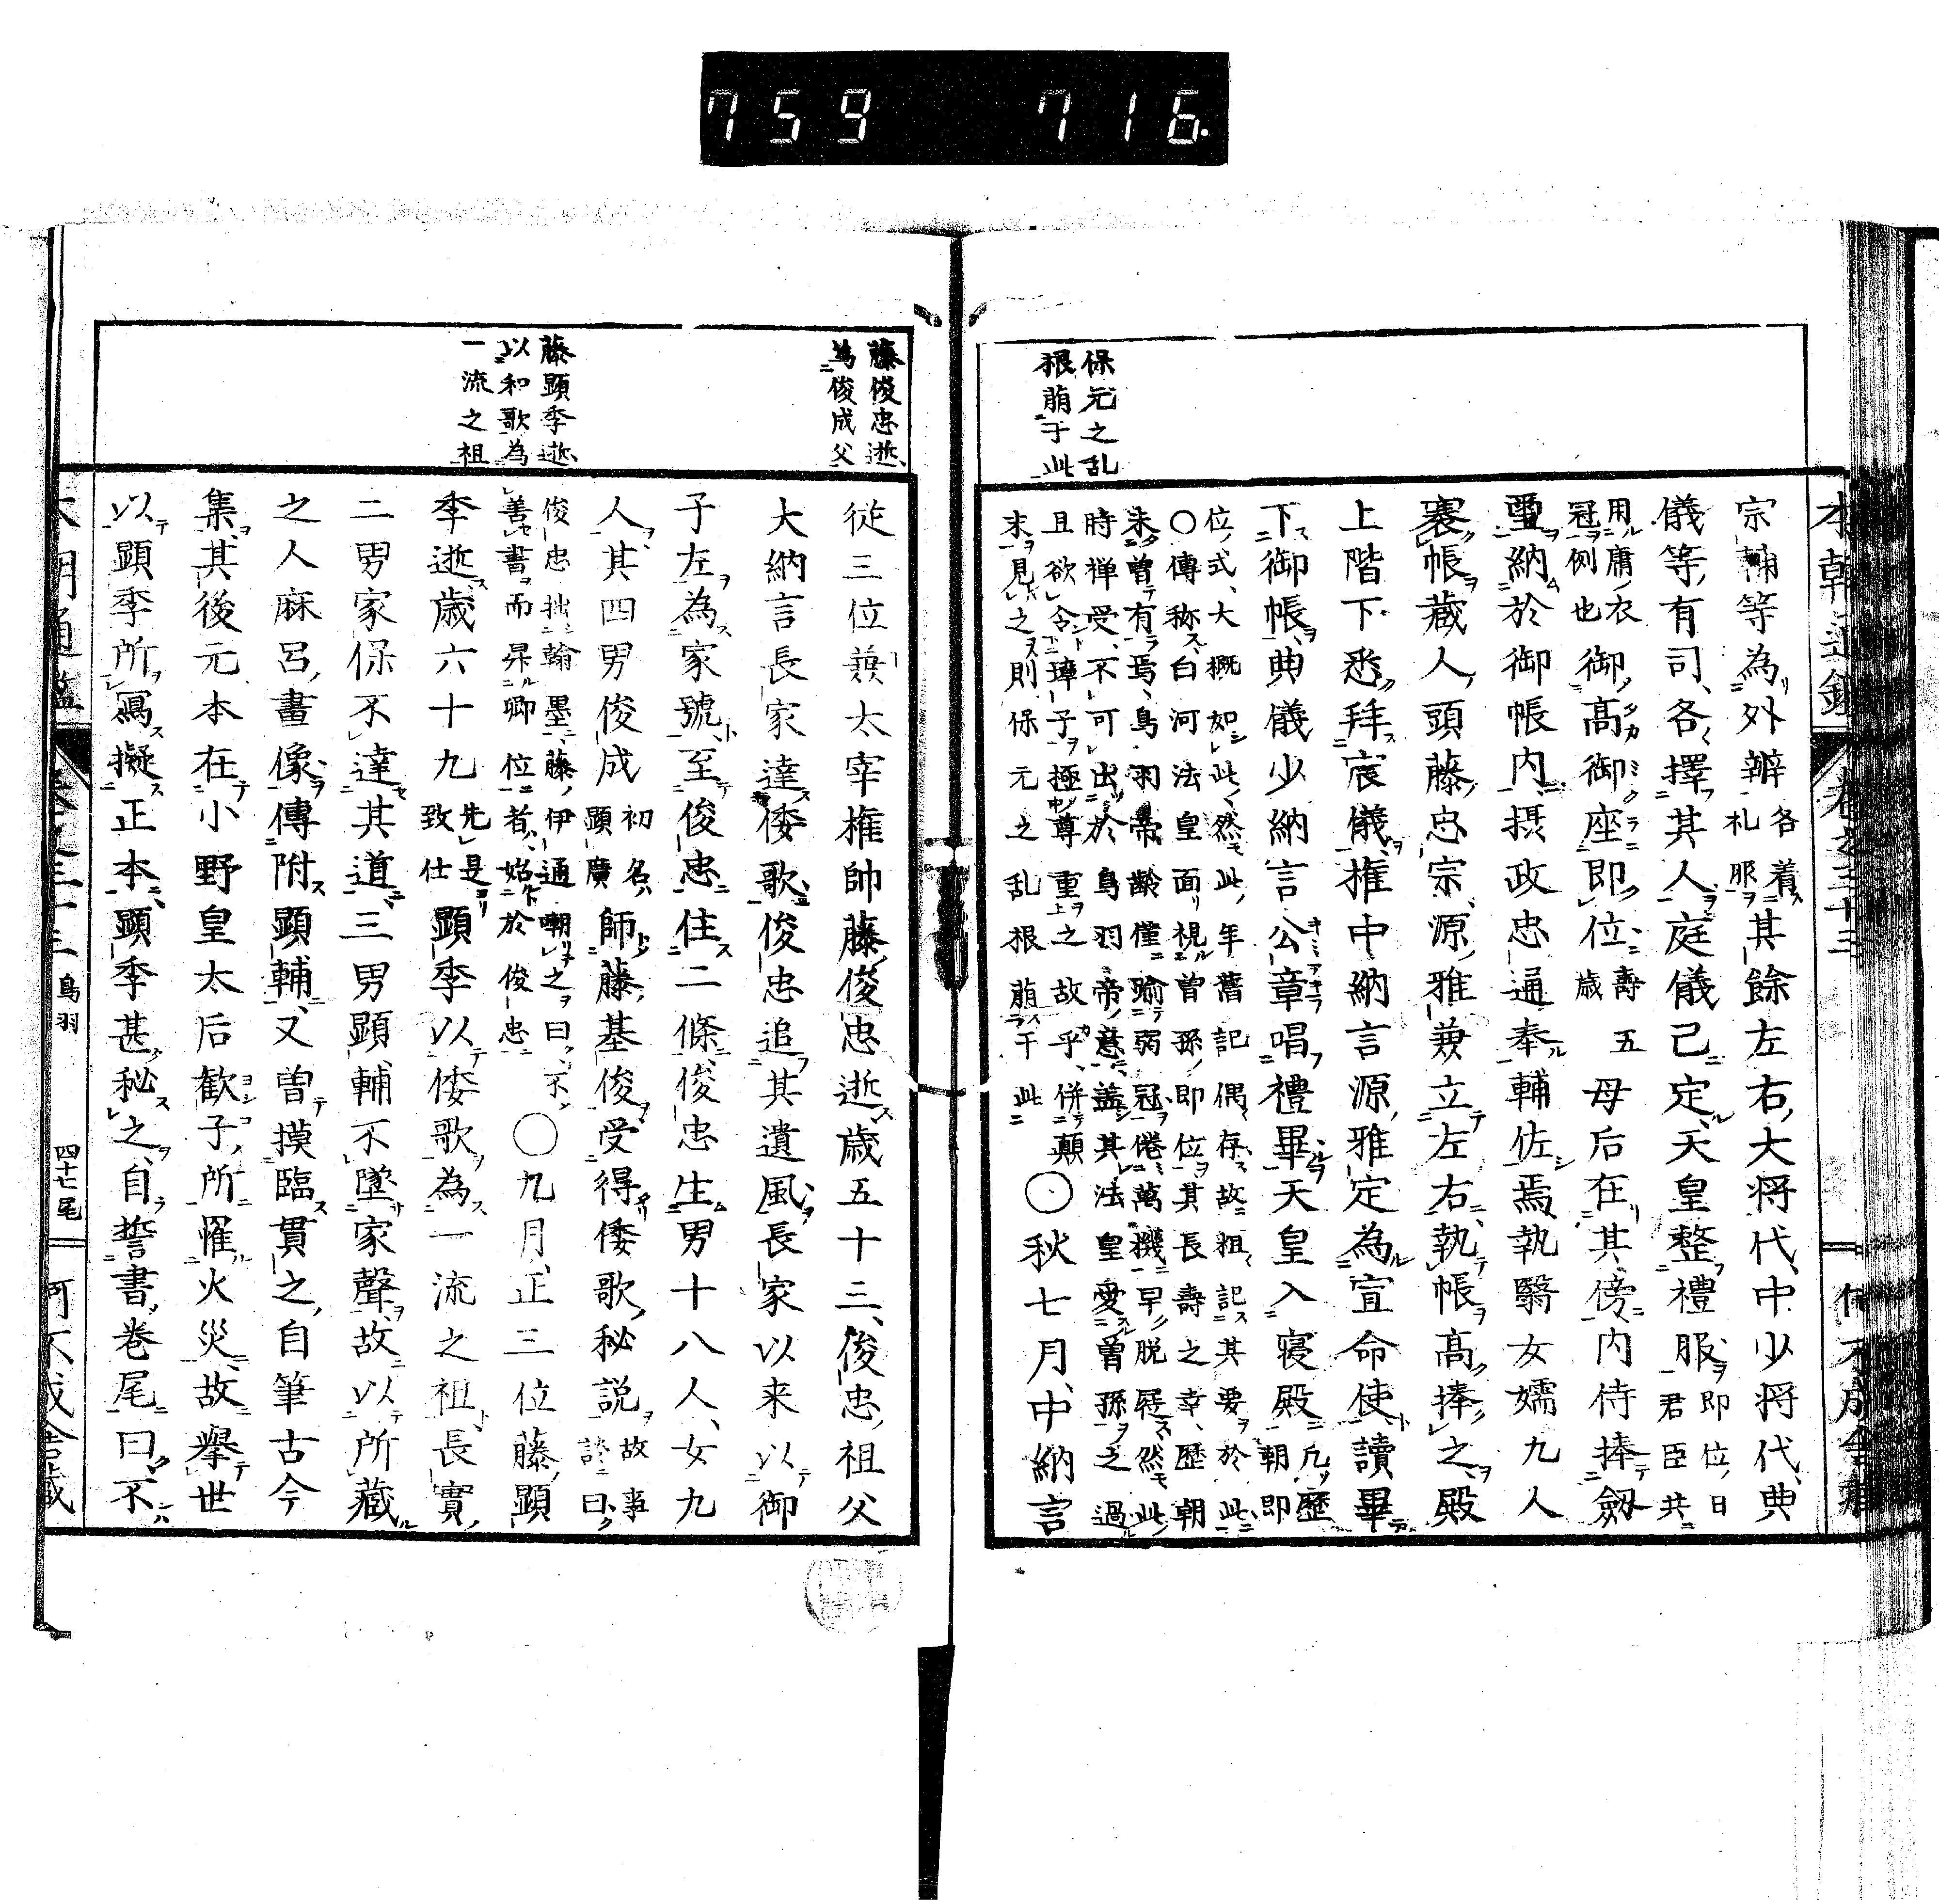 759 716.
保元之乱
根萠于此
宗輔等為外辨各着礼服其餘左右大将代中少将代典
儀等有司各擇其人庭儀已定天皇整禮服即位日君臣共
用庸衣冠例也御高御座即位壽五歳母后在其傍内侍捧劔
璽納於御帳内摂政忠通奉輔佐焉執翳女嬬九人
褰帳蔵人頭藤忠宗源雅兼立左右執帳高捧之殿
上階下悉拜宸儀権中納言源雅定為宣命使讀畢
下御帳典儀少納言公章唱禮畢天皇入寝殿凡歷朝即
位式大概如此然此年舊記偶存故粗記其要於此
○傳称白河法皇面視曽孫即位其長壽之幸歴朝
未曽有焉鳥羽帝齢僅踰弱冠倦萬機早脱屣然此
時禅受不可出於鳥羽帝意盖其法皇愛曽孫之過
且欲令璋子極尊重之故乎併顛
末見之則保元之乱根萠于此○秋七月中納言
藤俊忠逝
為俊成父
藤顕季逝
以和歌為
一流之祖
従三位兼太宰権帥藤俊忠逝歳五十三俊忠祖父
大納言長家達倭歌俊忠追其遺風長家以来以御
子左為家號至俊忠住二條俊忠生男十八人女九
人其四男俊成初名顕廣師藤基俊受得倭歌秘説故事談曰
俊忠拙翰墨藤伊通嘲之曰不
善書而昇卿位者始於俊忠○九月正三位藤顕
季逝歳六十九先是致仕顕季以倭歌為一流之祖長實
二男家保不達其道三男顕輔不墜家聲故以所藏
之人麻呂畫像傳附顕輔又曽摸臨貫之自筆古今
集其後元本在小野皇太后歓子所罹火災故擧世
以顕季所寫擬正本顕季甚秘之自誓書巻尾曰不
鳥羽
四十七尾